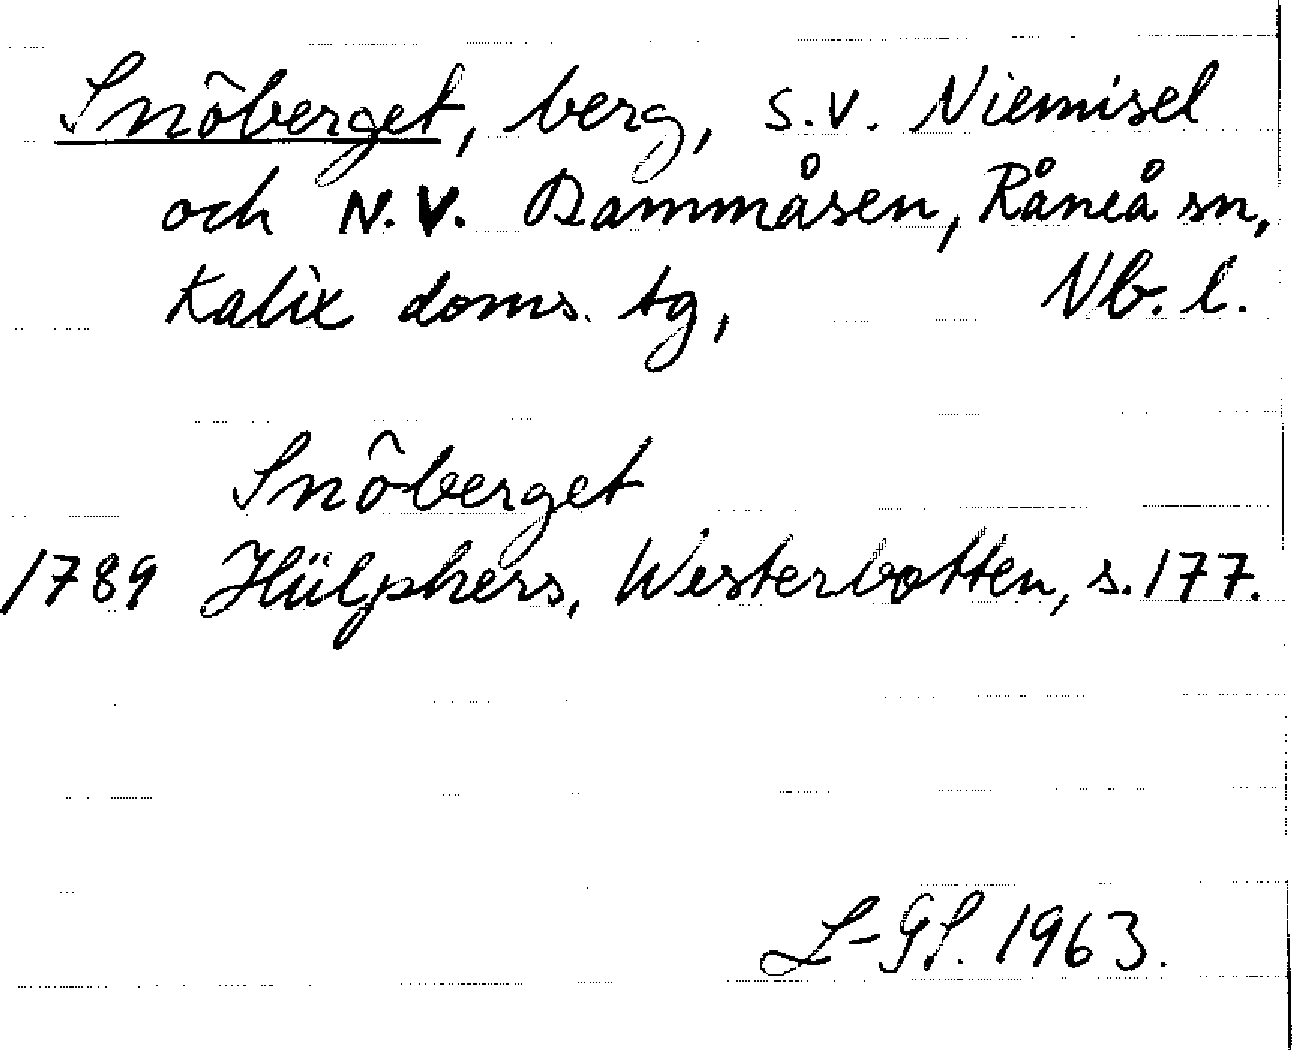 Snöberget, berg, S.V. Niemisel
och N.V. Dammåsen, Råneå sn,
Kalix doms. tg, Nb. l.
Snöberget
1789 Hülphers, Westerbotten, s. 177.
L-GL. 1963.